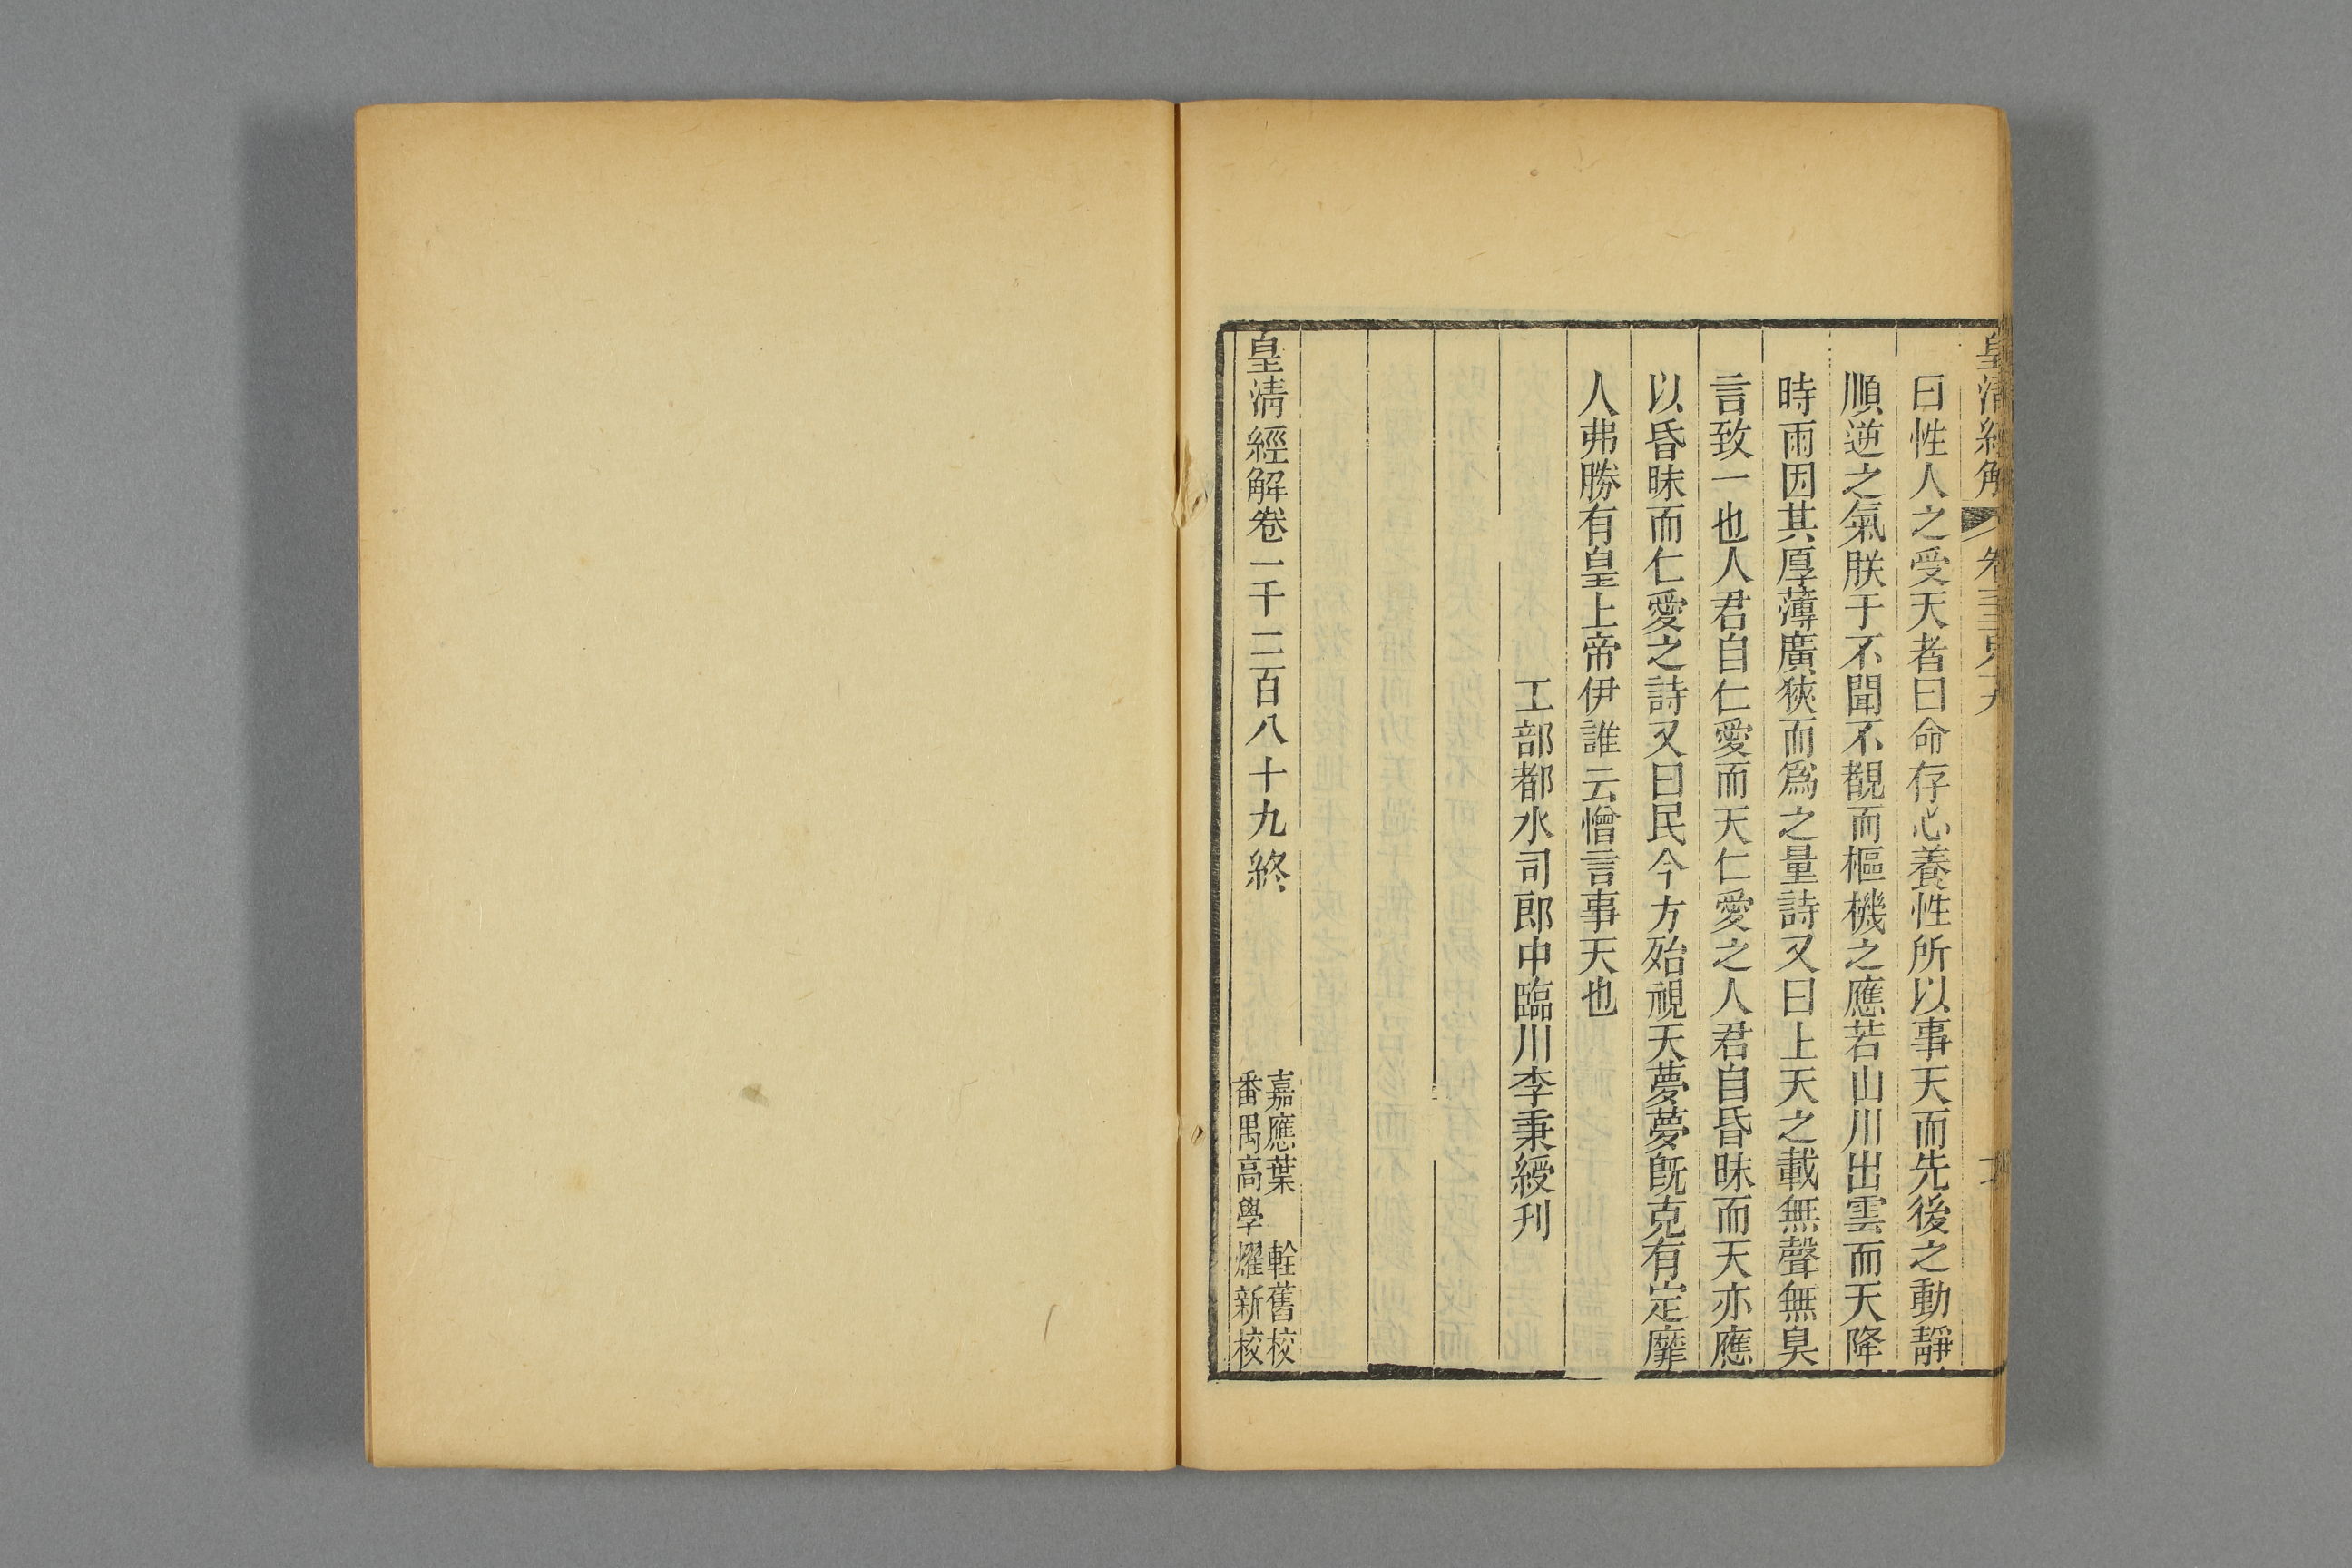 皇清經解
曰性人之受天者曰命存心養性所以事天而先後之動靜
順逆之氣朕于不聞不覩而樞機之應若山川出雲而天降
時雨因其厚薄廣狹而爲之量詩又曰上天之載無聲無臭
言致一也人君自仁愛而天仁愛之人君自昏昧而天亦應
以昏昧而仁愛之詩又曰民今方殆視天夢夢旣克有定靡
人弗勝有皇上帝伊誰云憎言事天也
工部都水司郎中臨川李秉綬刊
皇清經解卷一千二百八十九終
嘉應葉輇舊校
番禺高學燿新校